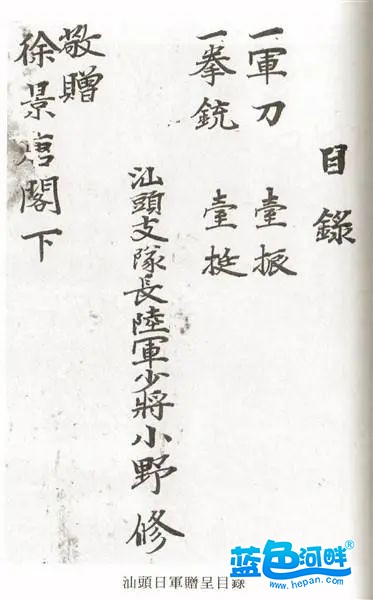 目錄
一軍刀 壹振
一拳銃 壹挺
汕頭支隊長陸軍少將小野修
敬贈
徐景唐閣下
汕頭日軍贈呈目錄
蓝色河畔®
www.hepan.com